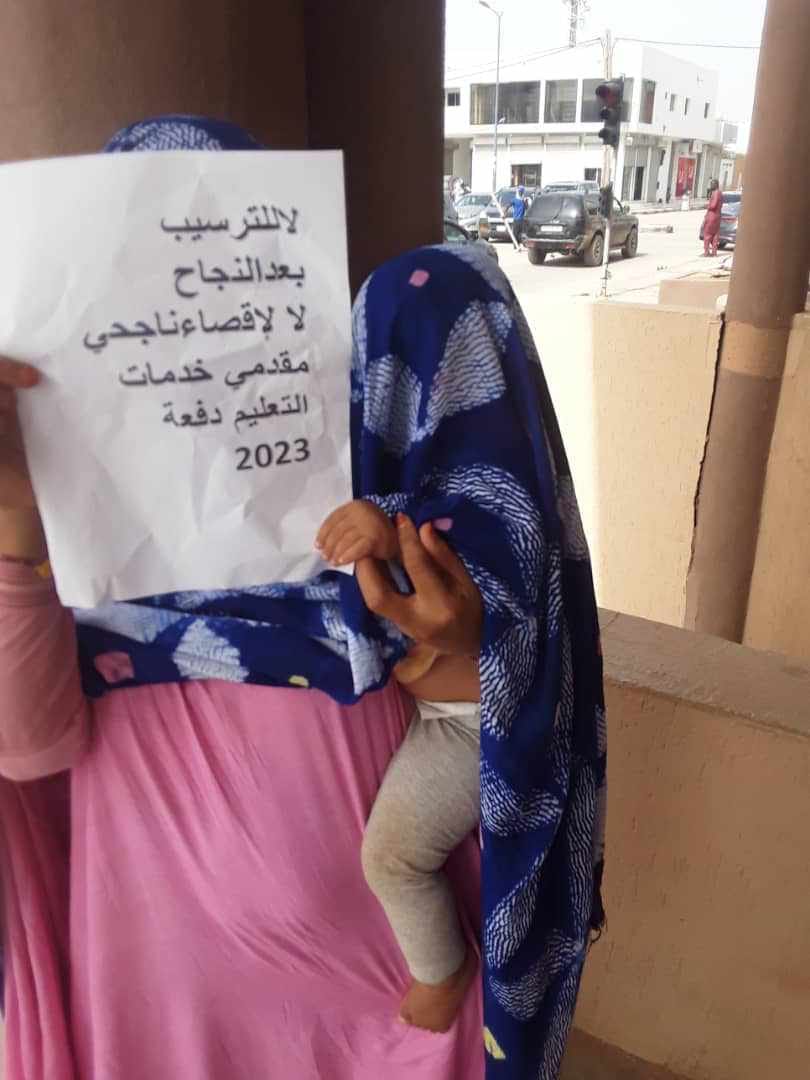 لاللترسيب
بعدالنجاح
لا لإقصاءناجحي
مقدمي خدمات
التعليم دفعة
2023